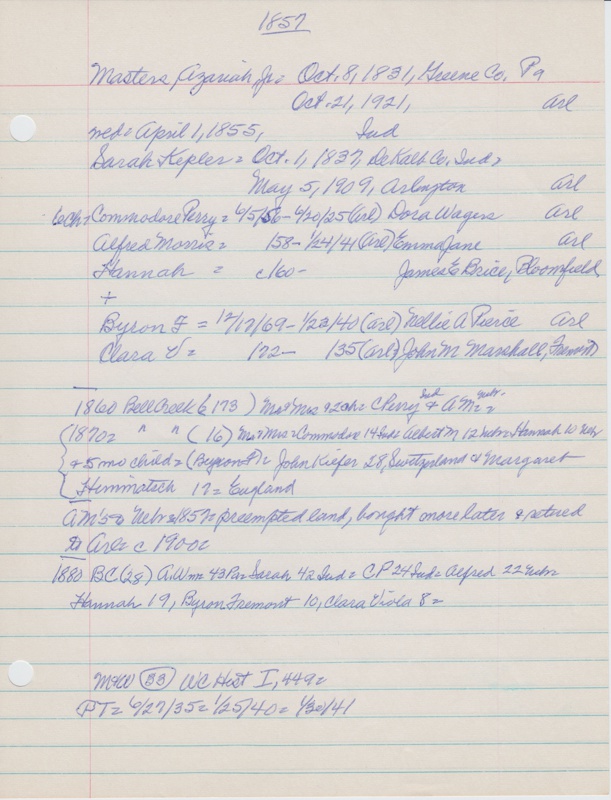 1857
Masters, Azariah Jr = Oct. 8, 1831, Greene Co. Pa
Oct. 21, 1921, Arl
med = April 1, 1855, Ind
Sarah Kepler = Oct. 1, 1837, DeKalb Co, Ind =
May 5, 1909, Arlington Arl
6ch = Commodore Perry = 6/5/56 - 4/20/25 (Arl) Dora Wagers Arl
Alfred Morris = 158 - 1/24/41 (Arl) Emma Jane Arl
Hannah = c160 - James E Brice, Bloomfield,
+
Byron F = 12/17/69 - 1/23/40 (Arl) Nellie A Pierce Arl
Clara V = 172 - 135 (Arl) John M Marshall, Fremont)
1860 Bell Creek (173) Mr & Mrs & 2ch = C Perry Ind & A M = Nebr. =
(1870 = " " (16) Mr & Mrs = Commodore 14 Ind = Albert M 12 Nebr = Hannah 10 Neb
& 5 mo child = (Byron F) = John Kiefer 28, Switzerland & Margaret
17 = England
A M's to Nebr = 1857 = preempted land, bought more later & retired
to Arl = c 1900 =
1880 BC (28) A W m 43 Pa = Sarah 42 Ind = C P 24 Ind = Alfred 22 Nebr =
Hannah 19, Byron Fremont 10, Clara Viola 8 =
M & W (33) WC Hist I, 449 =
PT = 6/27/35 = 1/25/40 = 1/30/41